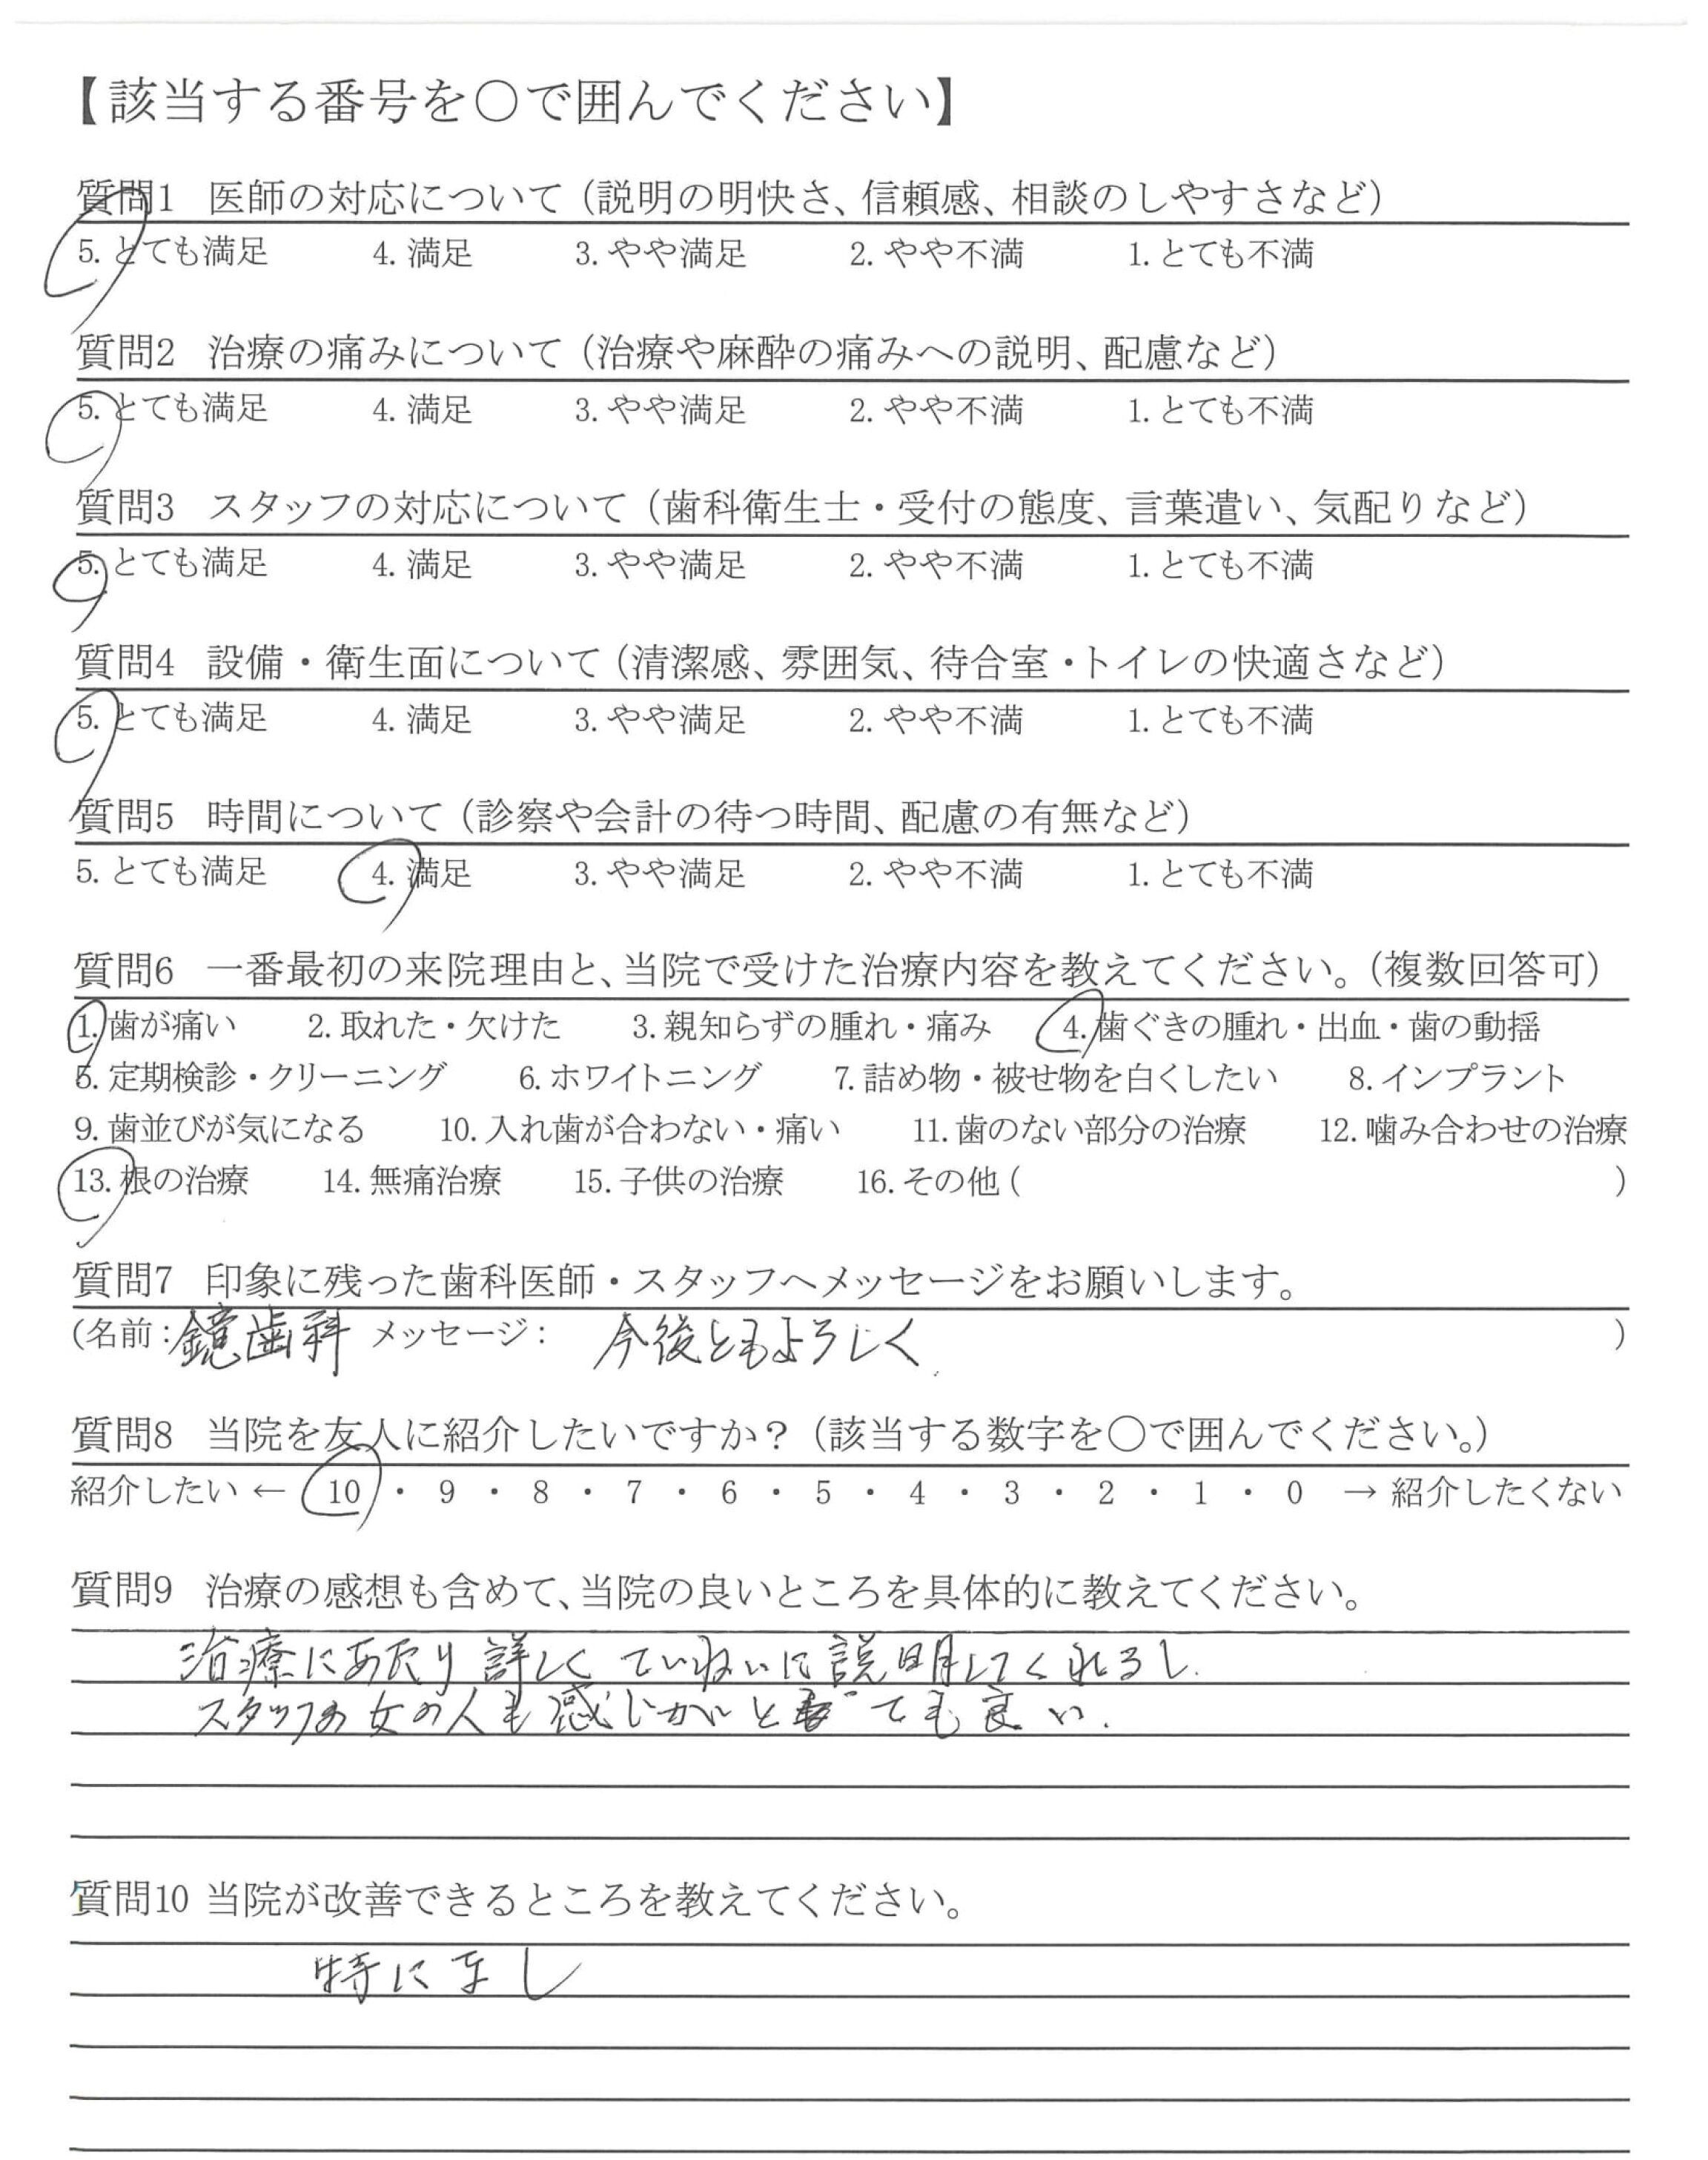 【該当する番号を○で囲んでください】
質問1 医師の対応について（説明の明快さ、信頼感、相談のしやすさなど）
5. とても満足 4. 満足 3. やや満足 2. やや不満 1. とても不満
質問2 治療の痛みについて（治療や麻酔の痛みへの説明、配慮など）
5. とても満足 4. 満足 3. やや満足 2. やや不満 1. とても不満
質問3 スタッフの対応について（歯科衛生士・受付の態度、言葉遣い、気配りなど）
5. とても満足 4. 満足 3. やや満足 2. やや不満 1. とても不満
質問4 設備・衛生面について（清潔感、雰囲気、待合室・トイレの快適さなど）
5. とても満足 4. 満足 3. やや満足 2. やや不満 1. とても不満
質問5 時間について（診察や会計の待つ時間、配慮の有無など）
5. とても満足 4. 満足 3. やや満足 2. やや不満 1. とても不満
質問6 一番最初の来院理由と、当院で受けた治療内容を教えてください。（複数回答可）
1. 歯が痛い 2. 取れた・欠けた 3. 親知らずの腫れ・痛み 4. 歯ぐきの腫れ・出血・歯の動揺
5. 定期検診・クリーニング 6. ホワイトニング 7. 詰め物・被せ物を白くしたい 8. インプラント
9. 歯並びが気になる 10. 入れ歯が合わない・痛い 11. 歯のない部分の治療 12. 噛み合わせの治療
13. 根の治療 14. 無痛治療 15. 子供の治療 16. その他（ ）
質問7 印象に残った歯科医師・スタッフへメッセージをお願いします。
（名前：鏡歯科 メッセージ： 今後ともよろしく ）
質問8 当院を友人に紹介したいですか？（該当する数字を○で囲んでください。）
紹介したい ← 10 ・ 9 ・ 8 ・ 7 ・ 6 ・ 5 ・ 4 ・ 3 ・ 2 ・ 1 ・ 0 → 紹介したくない
質問9 治療の感想も含めて、当院の良いところを具体的に教えてください。
治療にあたり詳しくていねいに説明してくれるし.
スタッフの女の人も感じがいとても良い.
質問10 当院が改善できるところを教えてください。
特になし